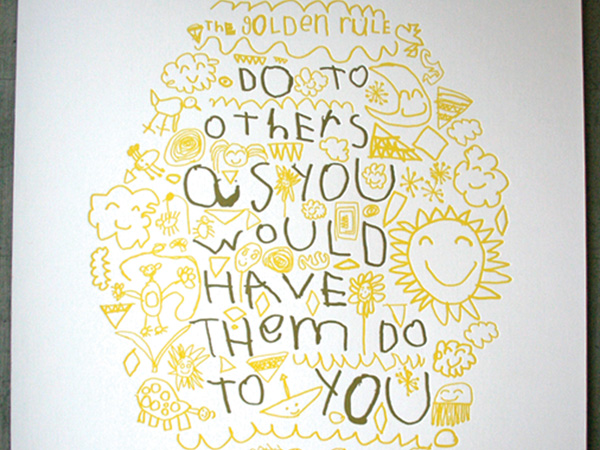 THE GOLDEN RULE
DO TO
OTHERS
as YOU
WOULD
HAVE
THEM DO
TO YOU